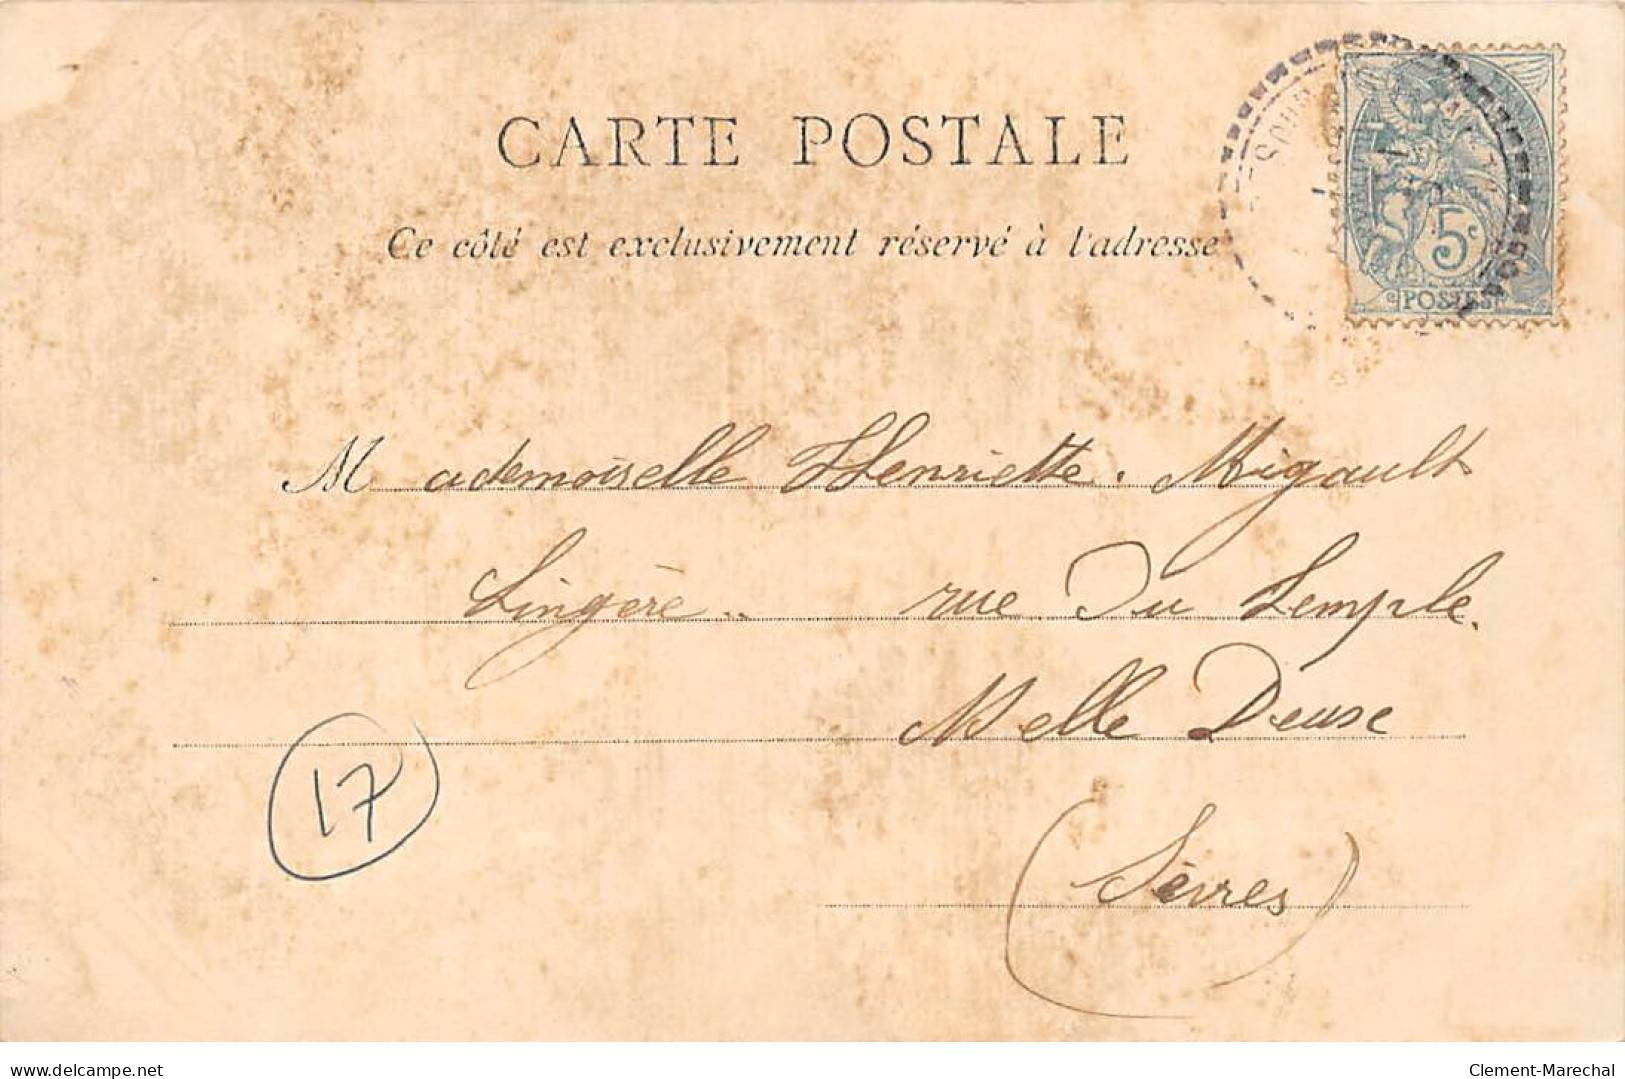 CARTE POSTALE
Ce côté est exclusivement réservé à l'adresse
5c
POSTES
Mademoiselle Henriette. Migault
Lingère.. rue Du Temple.
Melle Deuse
(Sèvres)
17
delcampe.net
Clement-Marechal